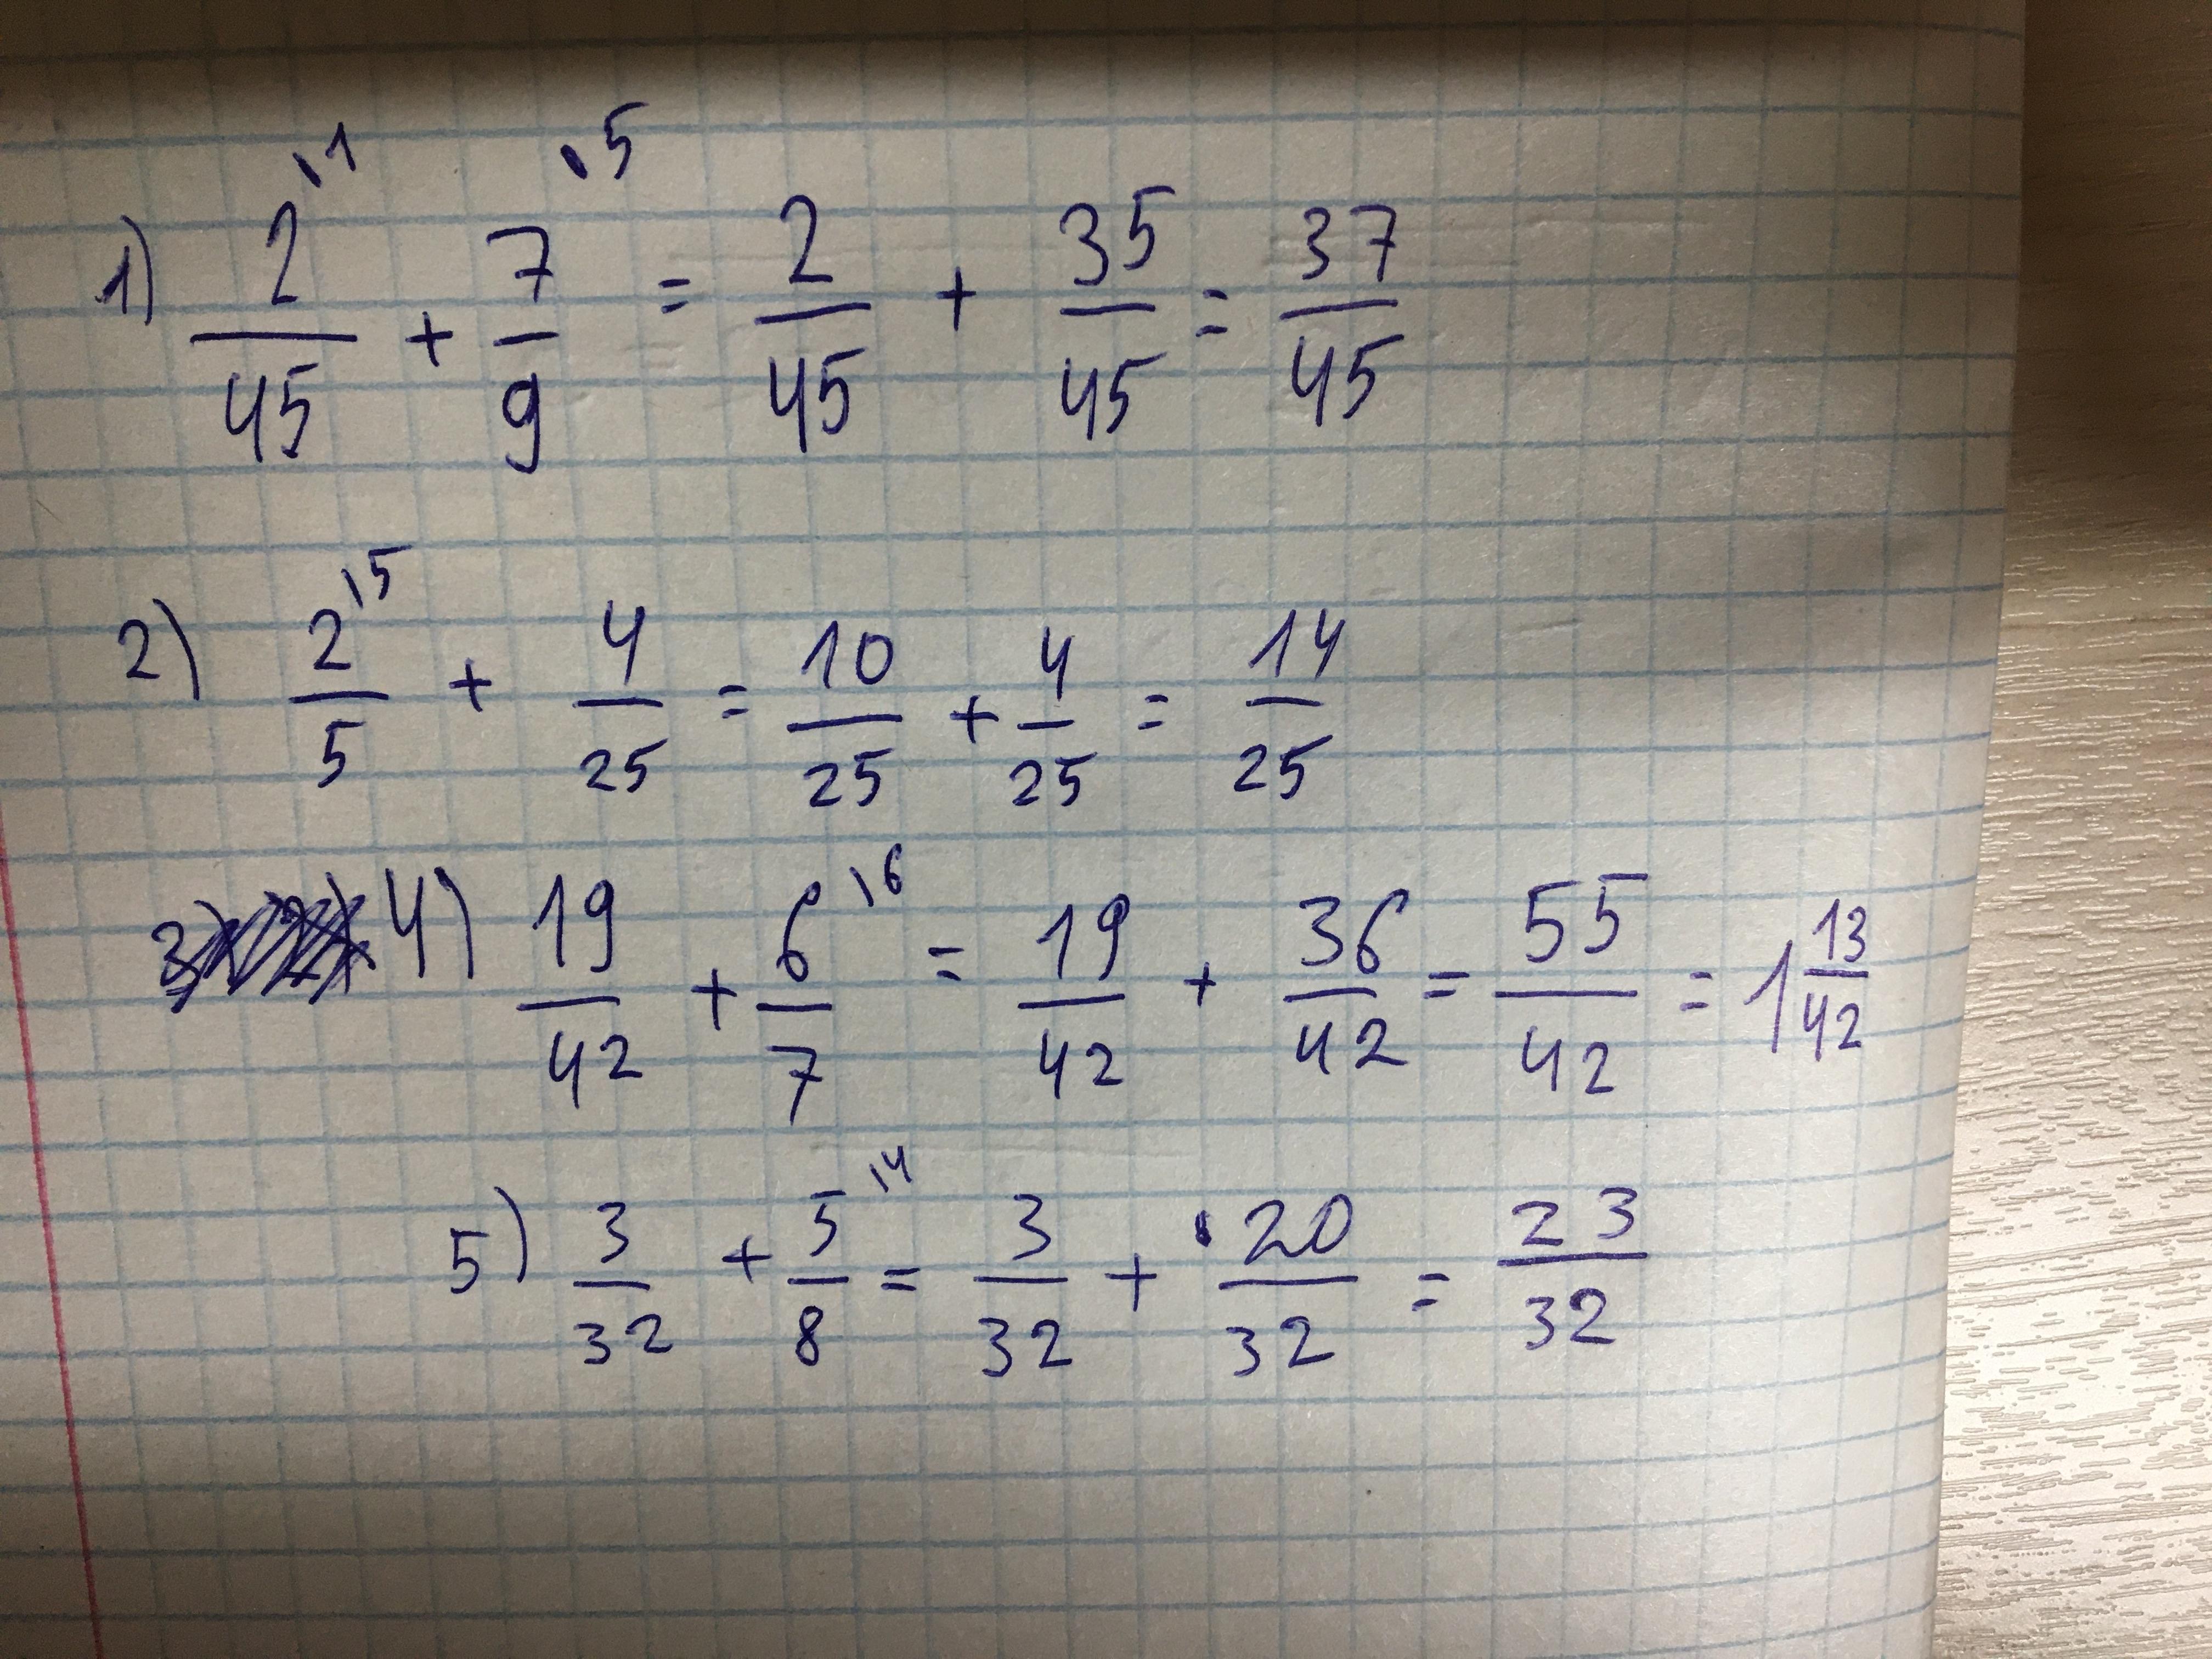 1) 2\1/45 + 7\5/9 = 2/45 + 35/45 = 37/45
2) 2\5/5 + 4/25 = 10/25 + 4/25 = 14/25
4) 19/42 + 6\6/7 = 19/42 + 36/42 = 55/42 = 1 13/42
5) 3/32 + 5\4/8 = 3/32 + 20/32 = 23/32